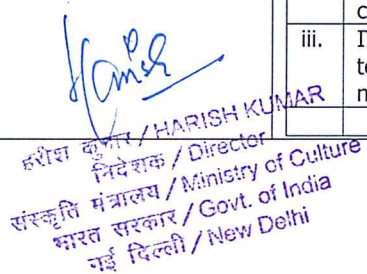 c
iii.
Harish
हरीश कुमार / HARISH KUMAR
निदेशक / Director
संस्कृति मंत्रालय / Ministry of Culture
भारत सरकार / Govt. of India
नई दिल्ली / New Delhi